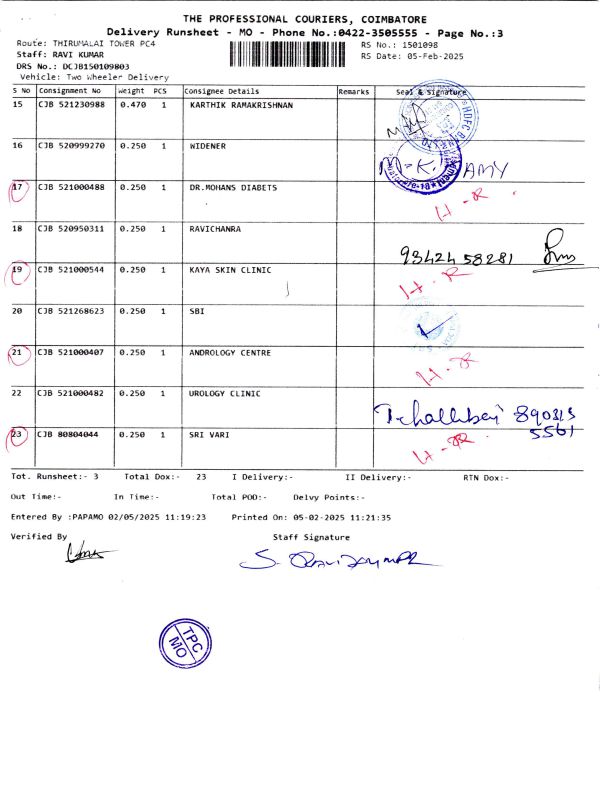 THE PROFESSIONAL COURIERS, COIMBATORE
Delivery Runsheet - MO - Phone No.:0422-3505555 - Page No.:3
Route: THIRUMALAI TOWER PC4 RS No.: 1501098
Staff: RAVI KUMAR RS Date: 05-Feb-2025
DRS No.: DCJB150109803
Vehicle: Two Wheeler Delivery
S No Consignment No Weight PCS Consignee Details Remarks Seal & Signature
15 CJB 521230988 0.470 1 KARTHIK RAMAKRISHNAN
HDFC BANK
16 CJB 520999270 0.250 1 WIDENER
M-K. AMY
17 CJB 521000488 0.250 1 DR.MOHANS DIABETS
H-R
18 CJB 520950311 0.250 1 RAVICHANRA
93424 58281
19 CJB 521000544 0.250 1 KAYA SKIN CLINIC
H-R
20 CJB 521268623 0.250 1 SBI
21 CJB 521000407 0.250 1 ANDROLOGY CENTRE
H-R
22 CJB 521000482 0.250 1 UROLOGY CLINIC
890315
5561
23 CJB 80804044 0.250 1 SRI VARI
H-R
Tot. Runsheet:- 3 Total Dox:- 23 I Delivery:- II Delivery:- RTN Dox:-
Out Time:- In Time:- Total POD:- Delvy Points:-
Entered By :PAPAMO 02/05/2025 11:19:23 Printed On: 05-02-2025 11:21:35
Verified By Staff Signature
S. RAVIKUMAR
TPC
MO